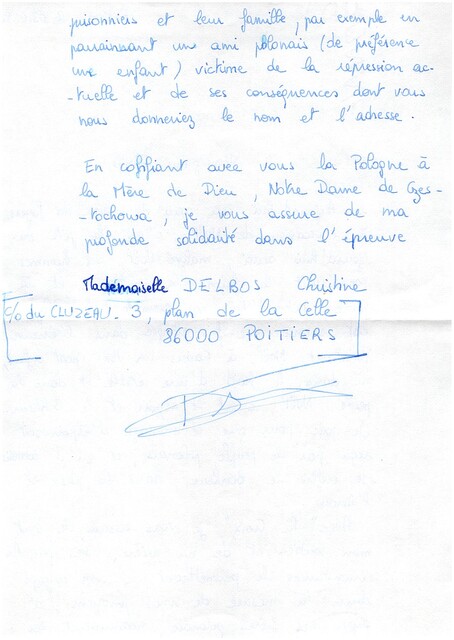 prisonniers et leur famille, par exemple en
parrainant un ami polonais (de préférence
une enfant) victime de la répression ac-
-tuelle et de ses conséquences dont vous
nous donneriez le nom et l'adresse.
En cofifiant avec vous la Pologne à
la Mère de Dieu, Notre Dame de Czes-
-tochowa, je vous assure de ma
profonde solidarité dans l'épreuve
Mademoiselle DELBOS Christine
c/o du CLUZEAU - 3, plan de la Celle
86000 POITIERS